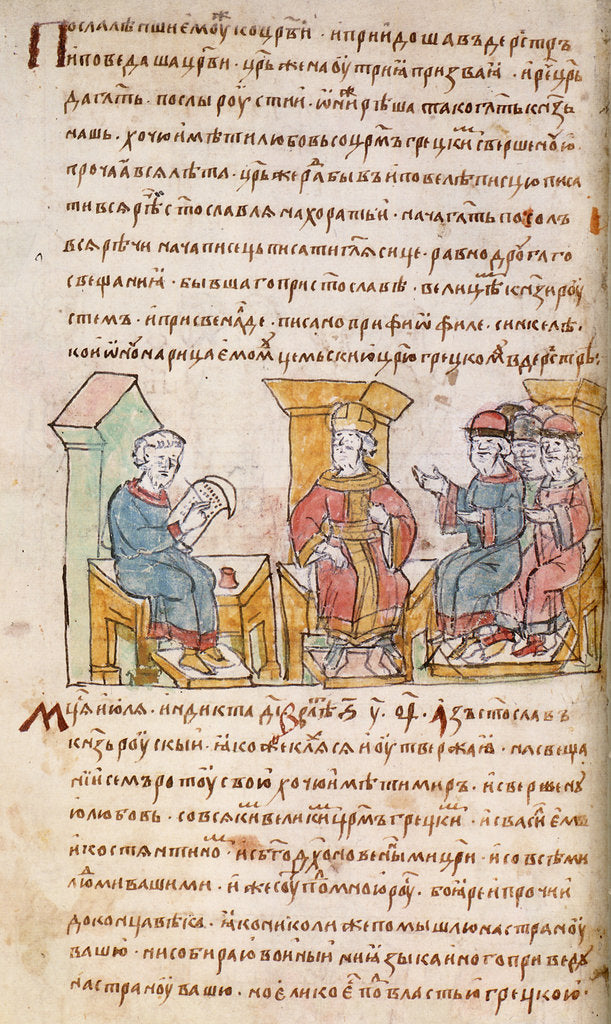 Послалѣпшиемоу̑жкоцр҃ви · иприидошавъдерестръ
иповедашацр҃ви · цр҃ьженаоутриꙗпризваꙗ · иреч҃цр҃ь
даг҃лть · послыроустии · ѡнижерѣша такогл҃тькнѧзь
нашь · хочюимѣтилюбовьсоцр҃мъгрецкимсвершеноую
прочаꙗвсялѣта · цр҃ьжерадбывъиповелѣписцюписа
тивсярѣчис҃тославлянахоратьи · начаглт҃ьпосолъ
всярѣчи начаписецьписатигл҃ясице · равнодроугаго
свещаниꙗ · бывшагопристославѣ · велицѣмкн҃зироу
стемъ · иприсвенаде · писаноприфиѡфиле · синкелѣ ·
коиѡноунарицаемомоуцемьскиюцр҃югрецкомоувдерестрѣ:
Мц҃яиюля · индиктад҃івлѣт҃ ѕ҃ у҃ оф҃ · Азъстославъ
кн҃зьроускыи · ꙗкожекляхсяиоутвержаю · насвеща
нїисемъротоусвою хочюимѣтимиръ · исвершену
юлюбовь · совсякимвеликимцр҃мъгрецким · исвасиемъ
икостянтином · исбг҃одохновеными цр҃и · исовсѣми
людмивашими · ижесоутьподомноюроу · бояреипрочии
доконцавѣка · ꙗконколижепомышлюнастраноу
вашю · нисобираювоиныинꙗзыкаиногоприведу
настраноувашю · ноеликоеподвластьюгрецкою ·